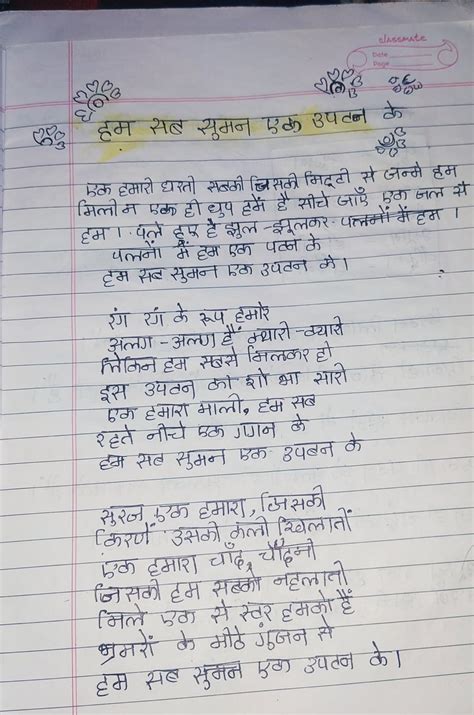 classmate
Date
Page
हम सब सुमन एक उपवन के
एक हमारी धरती सबकी जिसकी मिट्टी से जन्मे हम
मिली न एक ही धुप हमें है सीचे जाएँ एक जल से
हम । पले हुए है झुल-झूलकर पलनों में हम ।
पलनों में हम एक पवन के
हम सब सुमन एक उपवन के ।
रंग रंग के रूप हमारे
अलग-अलग हैं क्यारी-क्यारी
लेकिन हम सबसे मिलकर ही
इस उपवन की शोभा सारी
एक हमारा माली, हम सब
रहते नीचे एक गगन के
हम सब सुमन एक उपवन के
सुरज एक हमारा, जिसकी
किरणें उसकी कली खिलातीं
एक हमारा चाँद, चाँदनी
जिसकी हम सबको नहलाती
मिले एक से स्वर हमको हैं
भ्रमरों के मीठे गुंजन से
हम सब सुमन एक उपवन के ।